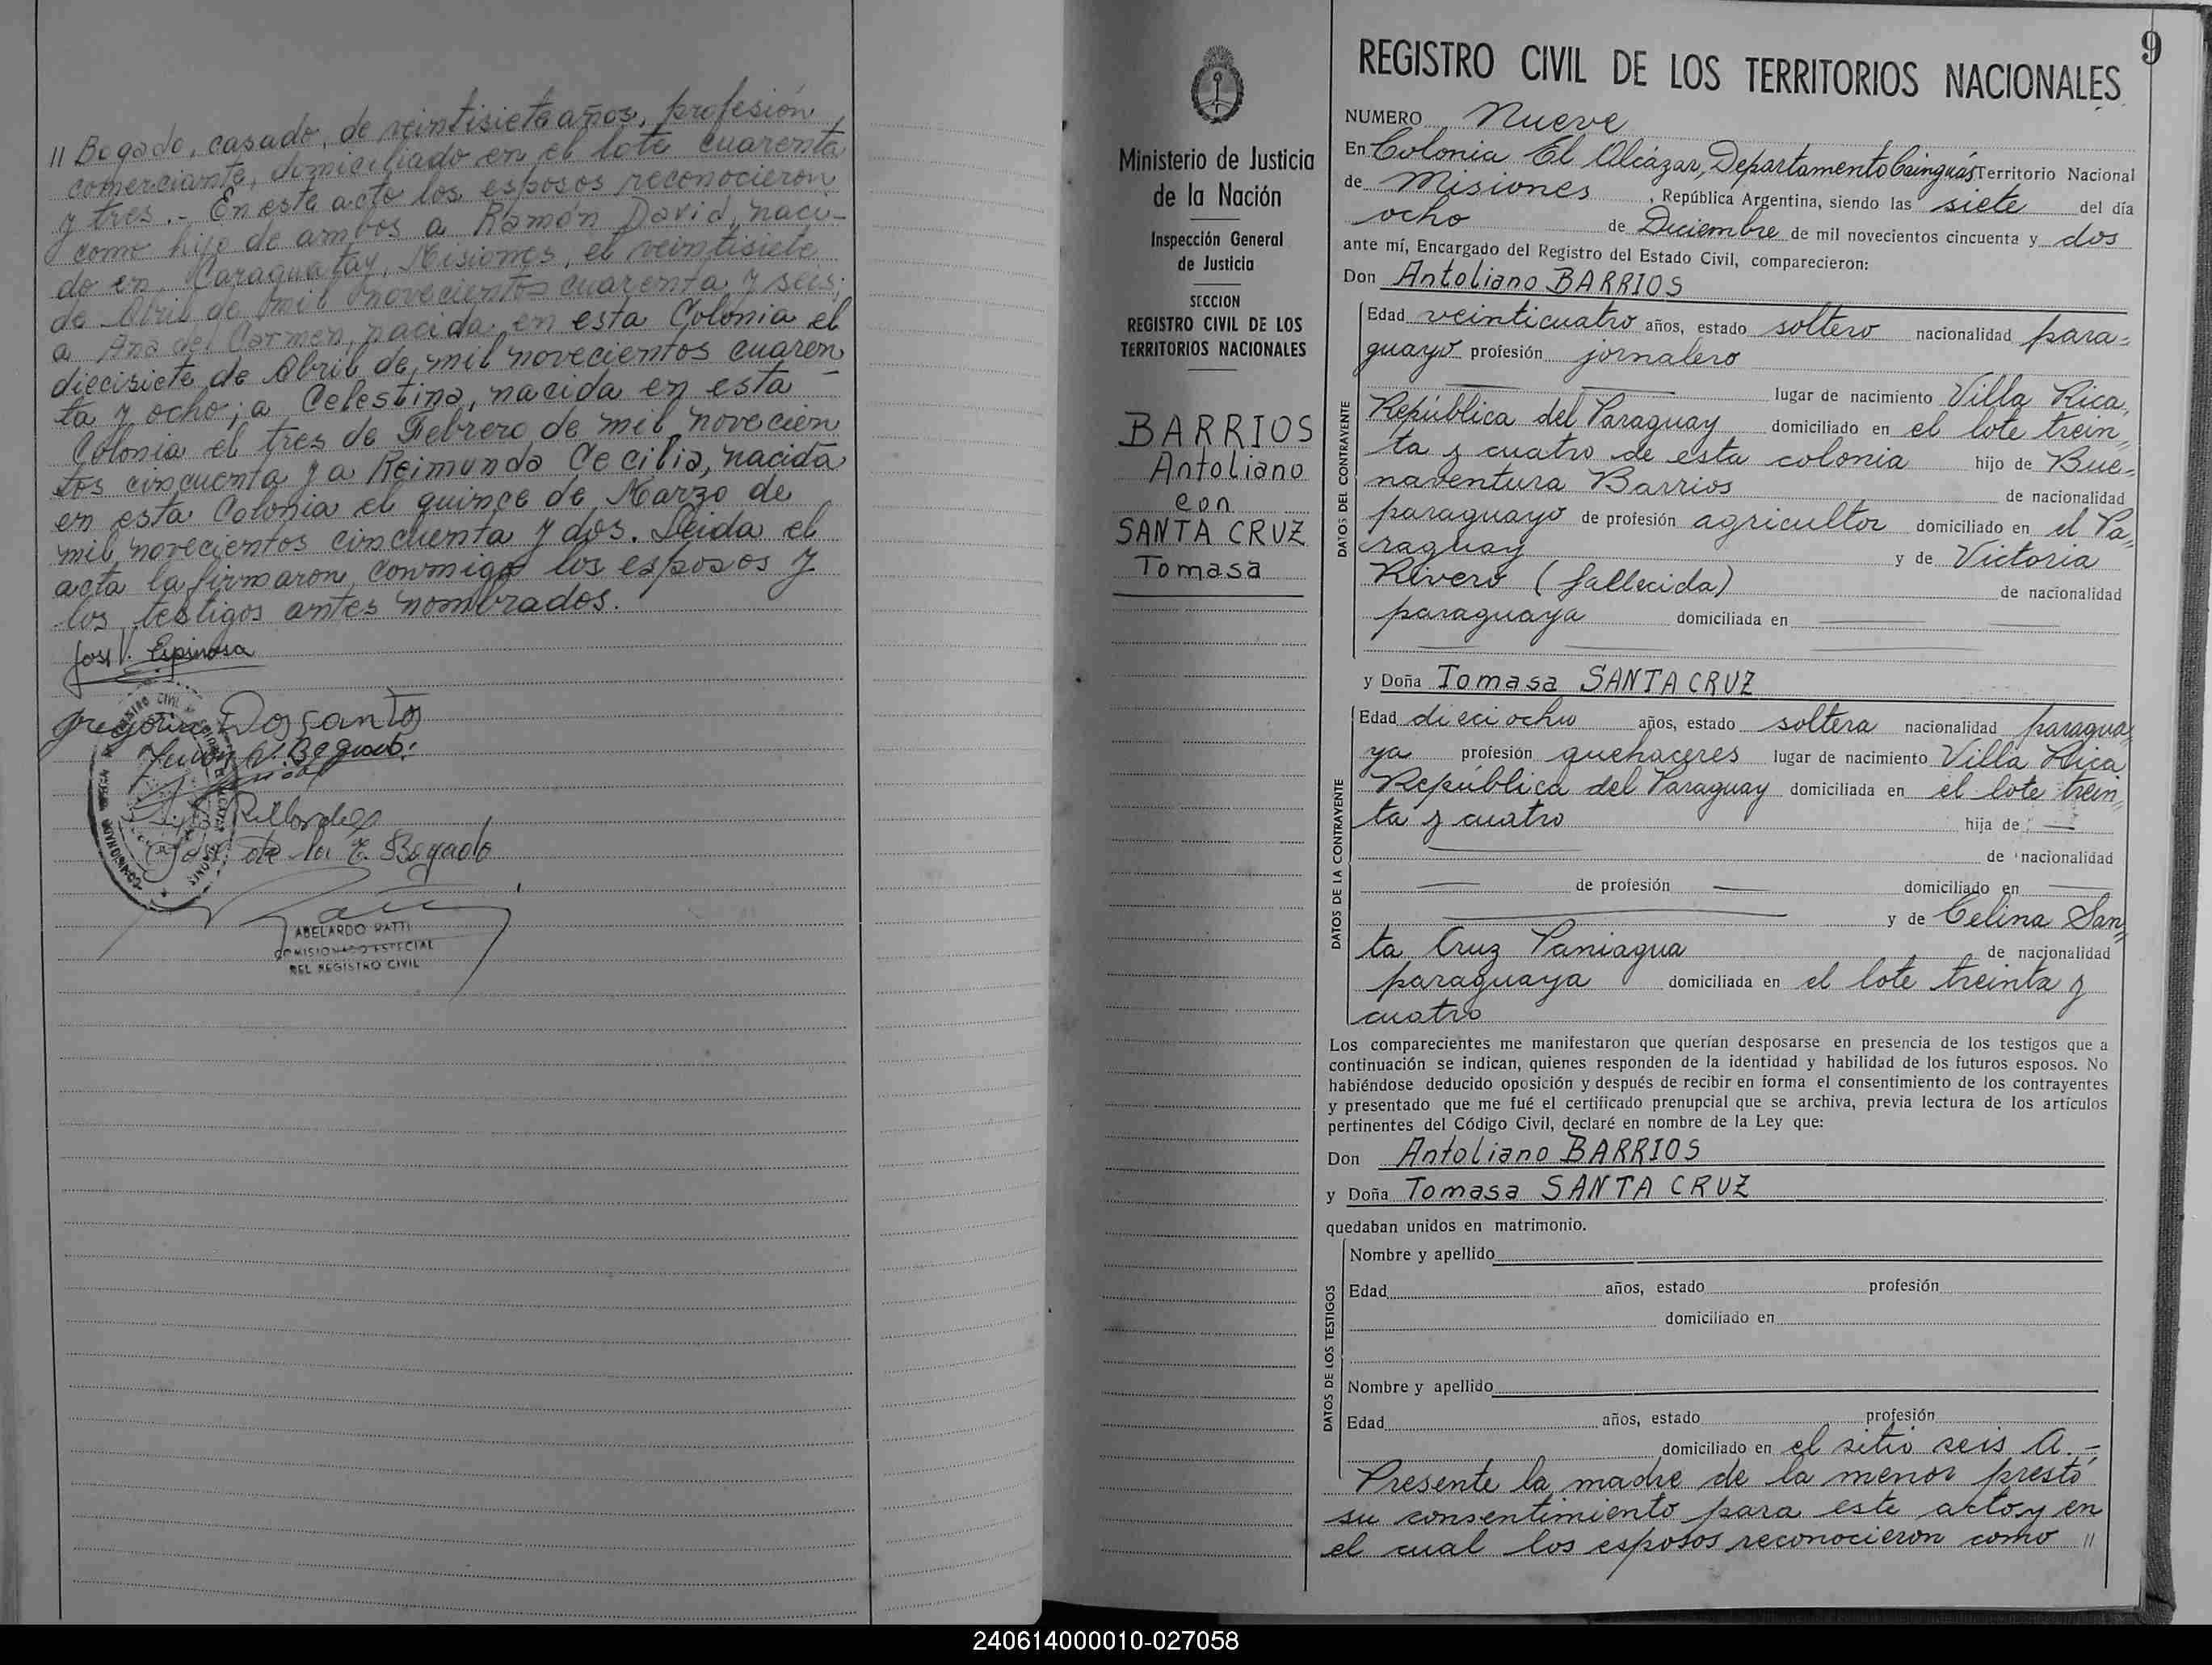 // Bogado, casado, de veintisiete años, profesión
comerciante, domiciliado en el lote cuarenta
y tres.- En este acto los esposos reconocieron
como hijo de ambos a Ramón David, naci-
do en Caraguatay, Misiones, el veintisiete
de Abril de mil novecientos cuarenta y seis;
a Ana del Carmen, nacida en esta Colonia el
diecisiete de Abril de mil novecientos cuaren
ta y ocho; a Celestina, nacida en esta
Colonia el tres de Febrero de mil novecien
tos cincuenta y a Reimunda Cecilia, nacida
en esta Colonia el quince de Marzo de
mil novecientos cincuenta y dos. Leida el
acta la firmaron conmigo los esposos y
los testigos antes nombrados.
José V. Espinosa
Dos Santos
de la C. Bogado
ABELARDO RATTI
COMISIONADO ESPECIAL
DEL REGISTRO CIVIL
9
REGISTRO CIVIL DE LOS TERRITORIOS NACIONALES
Ministerio de Justicia
de la Nación
Inspección General
de Justicia
SECCION
REGISTRO CIVIL DE LOS
TERRITORIOS NACIONALES
BARRIOS
Antoliano
con
SANTA CRUZ
Tomasa
NUMERO Nueve
En Colonia El Alcázar, Departamento Cainguás Territorio Nacional
de Misiones, República Argentina, siendo las siete del día
ocho de Diciembre de mil novecientos cincuenta y dos
ante mí, Encargado del Registro del Estado Civil, comparecieron:
Don Antoliano BARRIOS
DATOS DEL CONTRAYENTE
Edad veinticuatro años, estado soltero nacionalidad para=
guayo profesión jornalero
lugar de nacimiento Villa Rica,
República del Paraguay domiciliado en el lote trein"
ta y cuatro de esta colonia hijo de Bue=
naventura Barrios de nacionalidad
paraguayo de profesión agricultor domiciliado en el Pa"
raguay y de Victoria
Rivero (fallecida) de nacionalidad
paraguaya domiciliada en
y Doña Tomasa SANTA CRUZ
DATOS DE LA CONTRAYENTE
Edad dieciocho años, estado soltera nacionalidad paragua"
ya profesión quehaceres lugar de nacimiento Villa Rica
República del Paraguay domiciliada en el lote trein"
ta y cuatro hija de
de nacionalidad
de profesión domiciliado en
y de Celina San"
ta Cruz Paniagua de nacionalidad
paraguaya domiciliada en el lote treinta y
cuatro
Los comparecientes me manifestaron que querían desposarse en presencia de los testigos que a
continuación se indican, quienes responden de la identidad y habilidad de los futuros esposos. No
habiéndose deducido oposición y después de recibir en forma el consentimiento de los contrayentes
y presentado que me fué el certificado prenupcial que se archiva, previa lectura de los artículos
pertinentes del Código Civil, declaré en nombre de la Ley que:
Don Antoliano BARRIOS
y Doña Tomasa SANTA CRUZ
quedaban unidos en matrimonio.
DATOS DE LOS TESTIGOS
Nombre y apellido
Edad años, estado profesión
domiciliado en
Nombre y apellido
Edad años, estado profesión
domiciliado en el sitio seis A.-
Presente la madre de la menor prestó
su consentimiento para este acto y en
el cual los esposos reconocieron como //
240614000010-027058